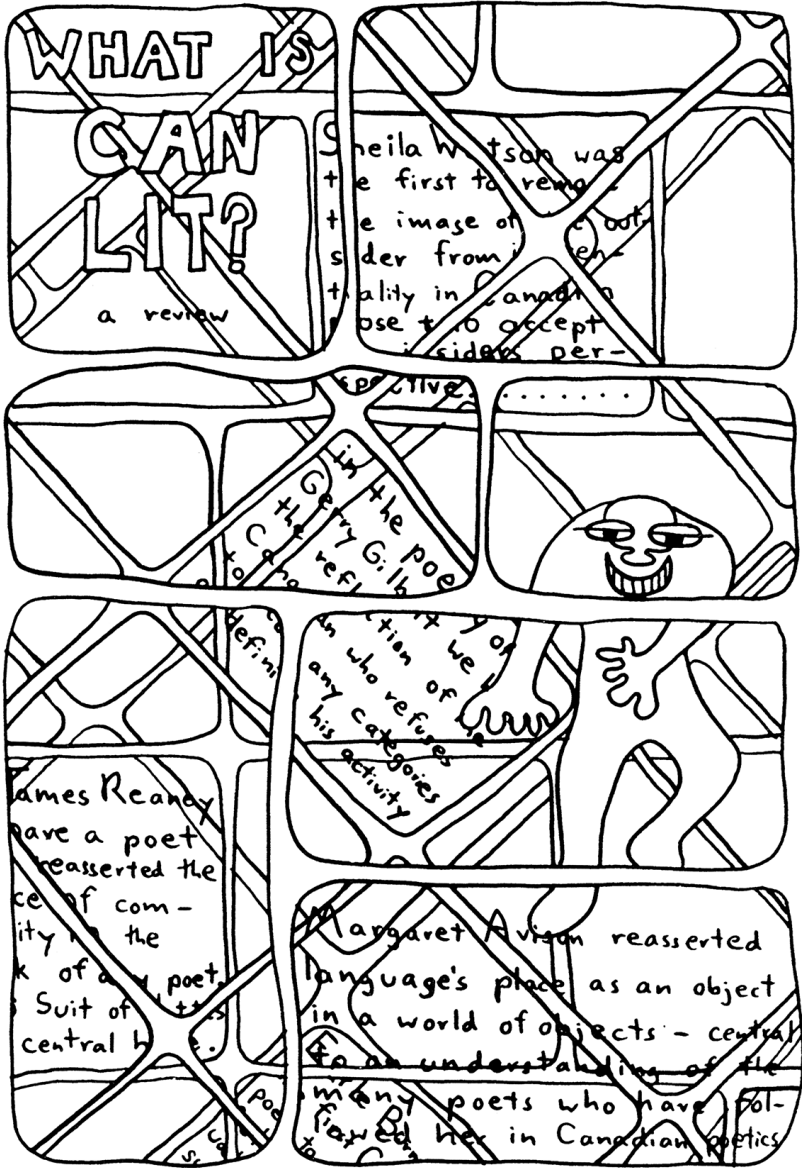 WHAT IS
CAN
LIT?
a review
Sheila Watson was
the first to remove
the image of the out-
sider from its cen-
trality in Canadian
prose to accept
insiders per-
spective.......
in the poe
Gerry Gilb
the refl
Cana
to
defini
y of
t we
ction of the
an who refuses
any categories
his activity
James Reaney
gave a poet
reasserted the
ce of com-
ity in the
k of any poet.
s Suit of Nettles
central h
Margaret Avison reasserted
language's place as an object
in a world of objects - central
to an understanding of the
many poets who have fol-
lowed her in Canadian poetics
poe
first B
to